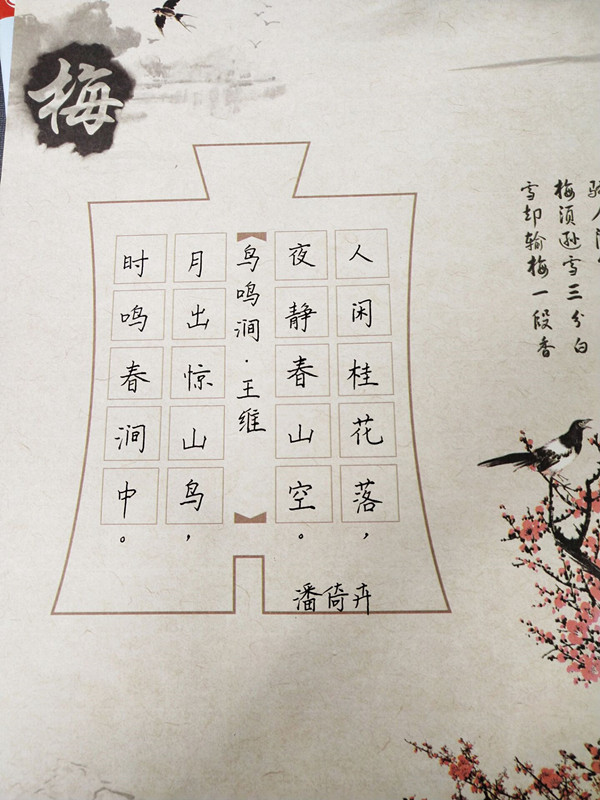 梅
梅须逊雪三分白
雪却输梅一段香
人闲桂花落，
夜静春山空。
鸟鸣涧·王维
月出惊山鸟，
时鸣春涧中。
潘倚卉